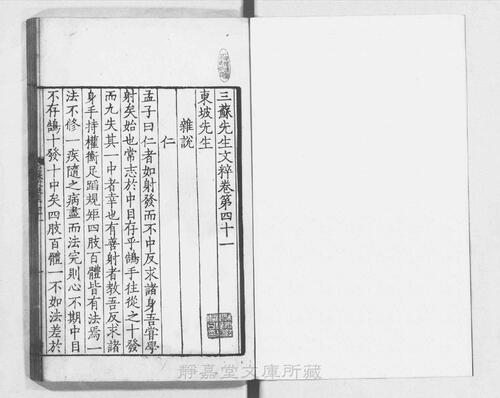 三蘇先生文粹卷第四十一
東坡先生
雜說
仁
孟子曰仁者如射發而不中反求諸身吾嘗學
射矣始也常志於中目存乎鵠手往從之十發
而九失其一中者幸也有善射者教吾反求諸
身手持權衡足蹈規矩四肢百體皆有法焉一
法不修一疾隨之病盡而法完則心不期中目
不存鵠十發十中矣四肢百體一不如法差於
靜嘉堂文庫所藏